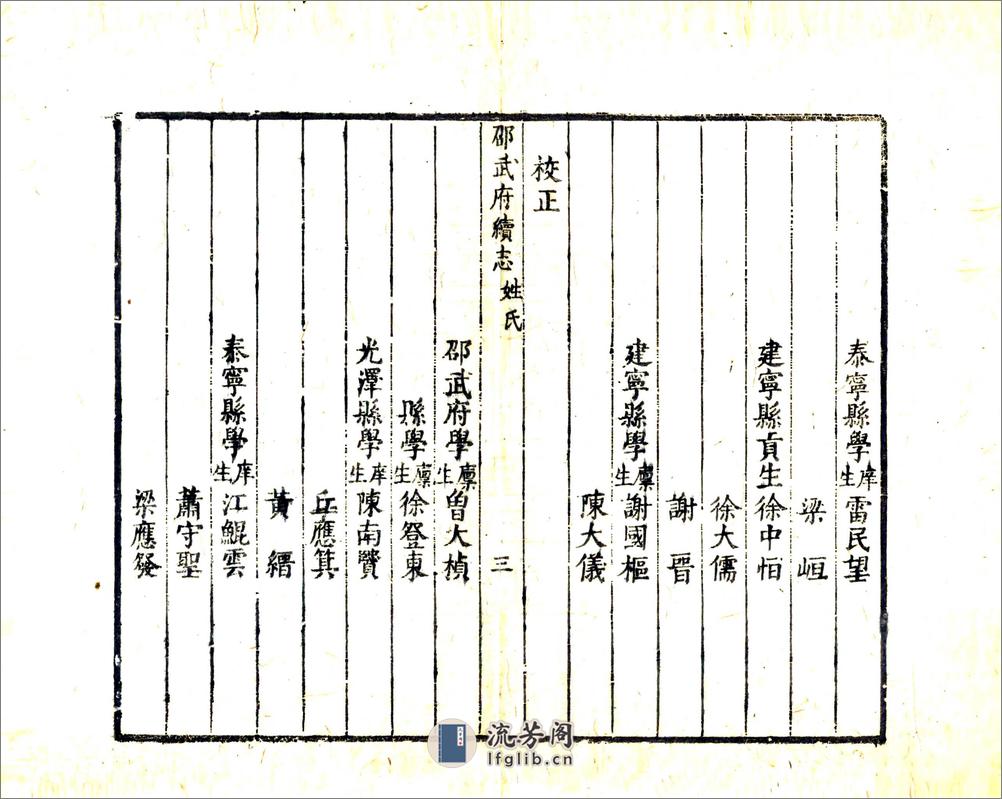 泰寧縣學庠生雷民望
梁峘
建寧縣貢生徐中恒
徐大儒
謝晋
建寧縣學廩生謝國樞
陳大儀
校正
邵武府續志 姓氏 三
邵武府學廩生曾大楨
縣學廩生徐登東
光澤縣學庠生陳南贊
丘應箕
黃縉
泰寧縣學庠生江鯤雲
蕭守聖
梁應發
流芳阁
lfglib.cn